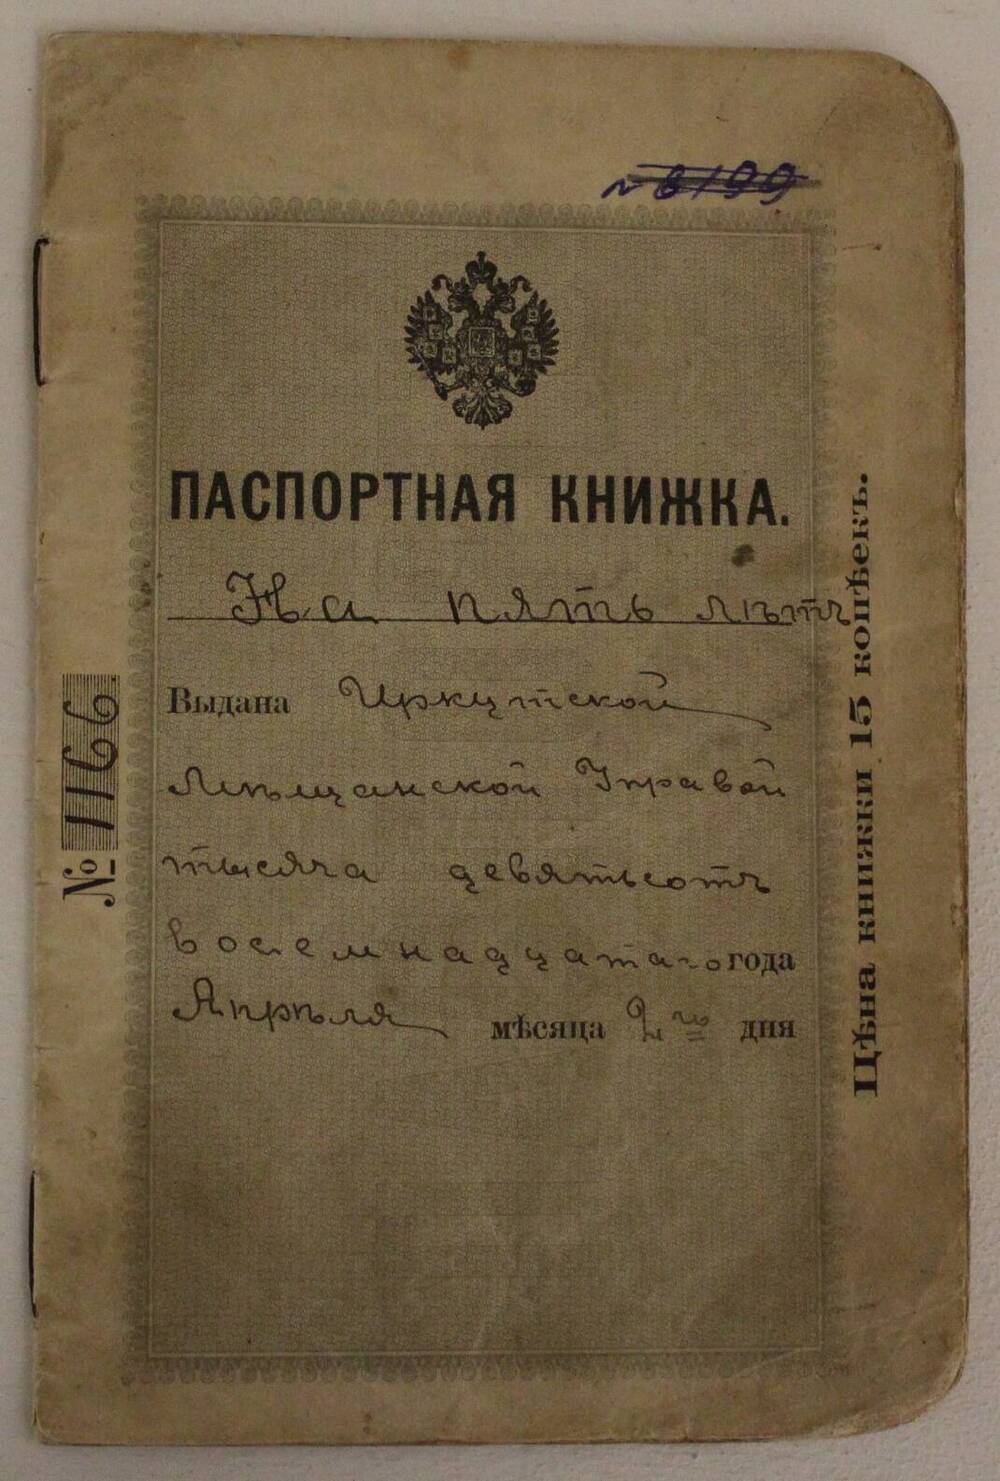 № 6199
ПАСПОРТНАЯ КНИЖКА.
На пять лѣтъ
Выдана Иркутской
Мѣщанской Управой
тысяча девятьсотъ
восемнадцатаго года
Апрѣля мѣсяца 2го дня
№ 1166
Цѣна книжки 15 копѣекъ.